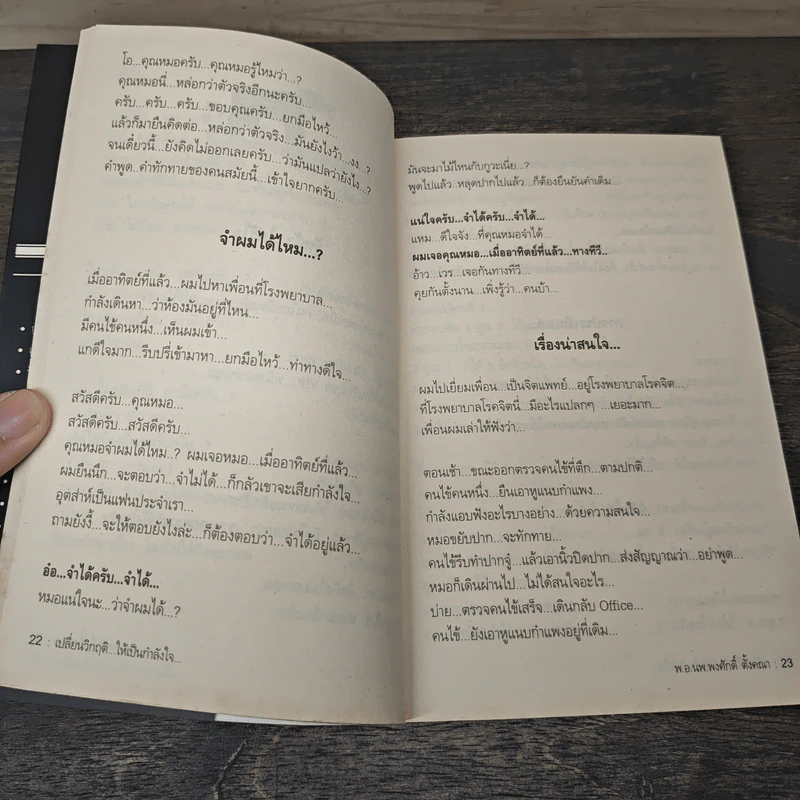 โอ...คุณหมอครับ...คุณหมอรู้ไหมว่า...?
คุณหมอนี่...หล่อกว่าตัวจริงอีกนะครับ...
ครับ...ครับ...ครับ...ขอบคุณครับ...ยกมือไหว้...
แล้วก็มายืนคิดต่อ...หล่อกว่าตัวจริง...มันยังไงว้า...งง...?
จนเดี๋ยวนี้...ยังคิดไม่ออกเลยครับ...ว่ามันแปลว่ายังไง...?
คำพูด..คำทักทายของคนสมัยนี้...เข้าใจยากครับ...
จำผมได้ไหม...?
เมื่ออาทิตย์ที่แล้ว...ผมไปหาเพื่อนที่โรงพยาบาล...
กำลังเดินหา...ว่าห้องมันอยู่ที่ไหน...
มีคนไข้คนหนึ่ง...เห็นผมเข้า...
แกดีใจมาก...รีบปรี่เข้ามาหา...ยกมือไหว้...ท่าทางดีใจ...
สวัสดีครับ...คุณหมอ...
สวัสดีครับ...สวัสดีครับ...
คุณหมอจำผมได้ไหม..? ผมเจอหมอ...เมื่ออาทิตย์ที่แล้ว...
ผมยืนนึก...จะตอบว่า...จำไม่ได้...ก็กลัวเขาจะเสียกำลังใจ...
อุตส่าห์เป็นแฟนประจำเรา...
ถามยังงี้...จะให้ตอบยังไงล่ะ...ก็ต้องตอบว่า...จำได้อยู่แล้ว...
อ๋อ...จำได้ครับ...จำได้...
หมอแน่ใจนะ...ว่าจำผมได้...?
22 : เปลี่ยนวิกฤติ...ให้เป็นกำลังใจ...
มันจะมาไม้ไหนกับกูวะเนี่ย...?
พูดไปแล้ว...หลุดปากไปแล้ว...ก็ต้องยืนยันคำเดิม...
แน่ใจครับ...จำได้ครับ...จำได้...
แหม...ดีใจจัง...ที่คุณหมอจำได้...
ผมเจอคุณหมอ...เมื่ออาทิตย์ที่แล้ว...ทางทีวี...
อ้าว...เวร...เจอกันทางทีวี...
คุยกันตั้งนาน...เพิ่งรู้ว่า...คนบ้า...
เรื่องน่าสนใจ...
ผมไปเยี่ยมเพื่อน...เป็นจิตแพทย์...อยู่โรงพยาบาลโรคจิต...
ที่โรงพยาบาลโรคจิตนี่...มีอะไรแปลกๆ ...เยอะมาก...
เพื่อนผมเล่าให้ฟังว่า...
ตอนเช้า...ขณะออกตรวจคนไข้ที่ตึก...ตามปกติ...
คนไข้คนหนึ่ง...ยืนเอาหูแนบกำแพง...
กำลังแอบฟังอะไรบางอย่าง...ด้วยความสนใจ...
หมอขยับปาก...จะทักทาย...
คนไข้รีบทำปากจู๋...แล้วเอานิ้วปิดปาก...ส่งสัญญาณว่า...อย่าพูด...
หมอก็เดินผ่านไป...ไม่ได้สนใจอะไร...
บ่าย...ตรวจคนไข้เสร็จ...เดินกลับ Office...
คนไข้...ยังเอาหูแนบกำแพงอยู่ที่เดิม...
พ.อ.นพ.พงศักดิ์ ตั้งคณา : 23